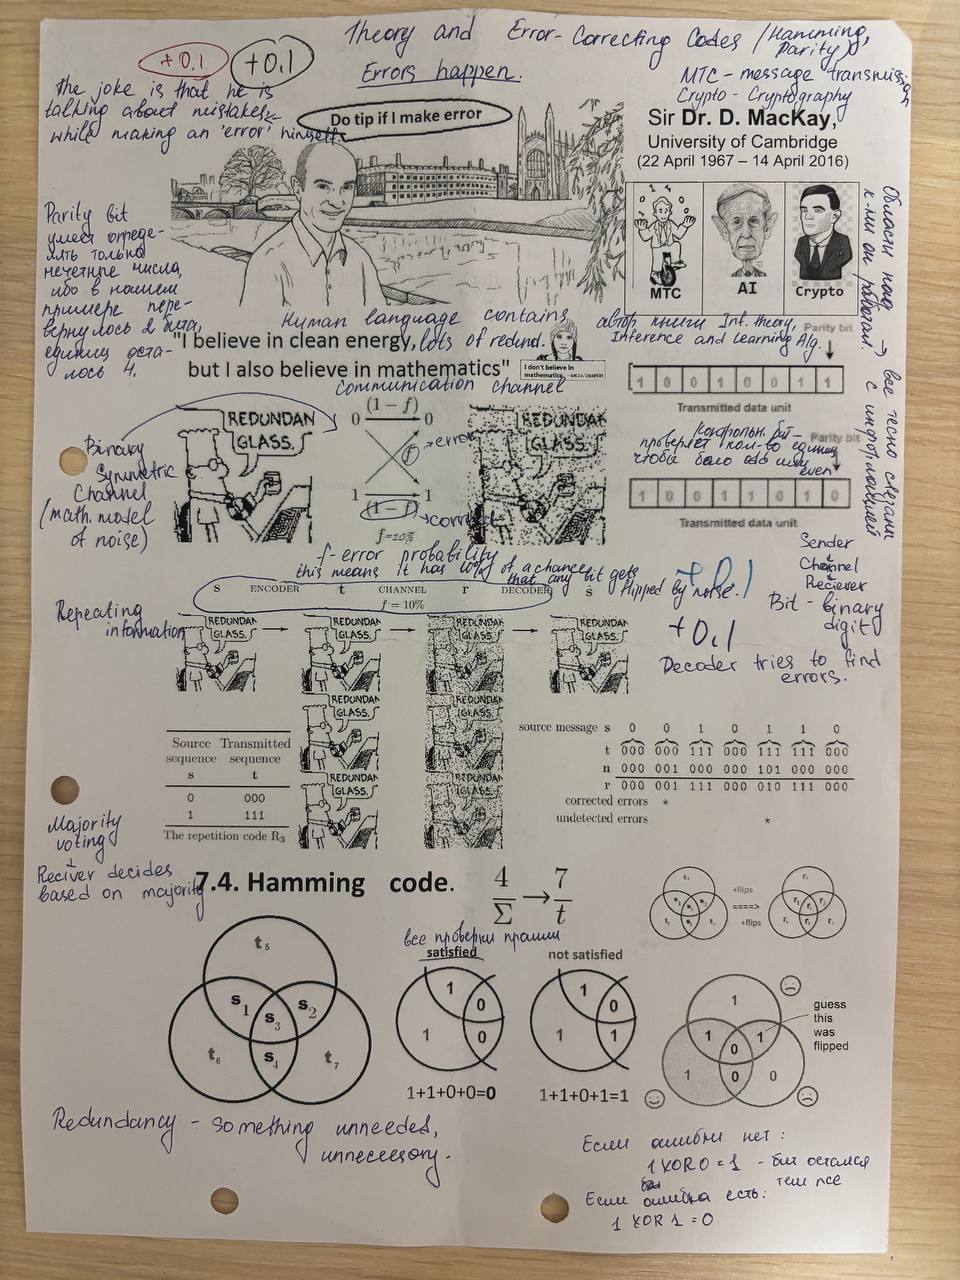 Theory and Error-Correcting Codes (Hamming,
Parity)
+0.1
+0.1
Errors happen.
MTC - message transmission
Crypto - Cryptography
the joke is that he is
talking about mistakes
while making an 'error' himself.
Do tip if I make error
Sir Dr. D. MacKay,
University of Cambridge
(22 April 1967 – 14 April 2016)
MTC
AI
Crypto
Области над
к-ми он работал. → все тесно связаны
с информацией
Parity bit
умеет опреде-
лять только
нечетные числа,
ибо в нашем
примере пере-
вернулось 2 бита,
единиц оста-
лось 4.
Human language contains
lots of redund.
"I believe in clean energy,
but I also believe in mathematics"
I don't believe in
mathematics.
автор книги Inf. theory,
Inference and Learning Alg.
Parity bit
1 0 0 1 0 0 1 1
Transmitted data unit
Контрольн. бит -
проверяет кол-во единиц
чтобы было odd или
even
Parity bit
1 0 0 1 1 0 1 0
Transmitted data unit
Communication channel
Binary
Symmetric
Channel
(math. model
of noise)
REDUNDAN
GLASS.
(1−f)
0 0
f → error
1 1
(1−f) → correct
f=10%
REDUNDAN
GLASS.
f-error probability
this means it has 10% of a chance
that any bit gets
flipped by noise!
Sender
Channel
Reciever
Bit - binary
digit
+0.1
Decoder tries to find
errors.
s ENCODER t CHANNEL r DECODER ŝ
f = 10%
Repeating
information
REDUNDAN
GLASS.
REDUNDAN
GLASS.
REDUNDAN
GLASS.
REDUNDAN
GLASS.
REDUNDAN
GLASS.
REDUNDAN
GLASS.
REDUNDAN
GLASS.
REDUNDAN
GLASS.
Source Transmitted
sequence sequence
s t
0 000
1 111
The repetition code R3
source message s 0 0 1 0 1 1 0
t 000 000 111 000 111 111 000
n 000 001 000 000 101 000 000
r 000 001 111 000 010 111 000
corrected errors *
undetected errors *
Majority
voting
↓
Reciver decides
based on majority
7.4. Hamming code.
4/Σ → 7/t
+flips
====>
+flips
все проверки прошли
satisfied
not satisfied
t5
s1
s2
s3
s4
t6
t7
1
0
1
0
1+1+0+0=0
1
0
1
1
1+1+0+1=1
1
1
1
0
1
0
0
guess
this
was
flipped
Redundancy - something unneeded,
unnecessory.
Если ошибки нет:
1 XOR 0 = 1 - бит остался
тем же
Если ошибка есть:
1 XOR 1 = 0